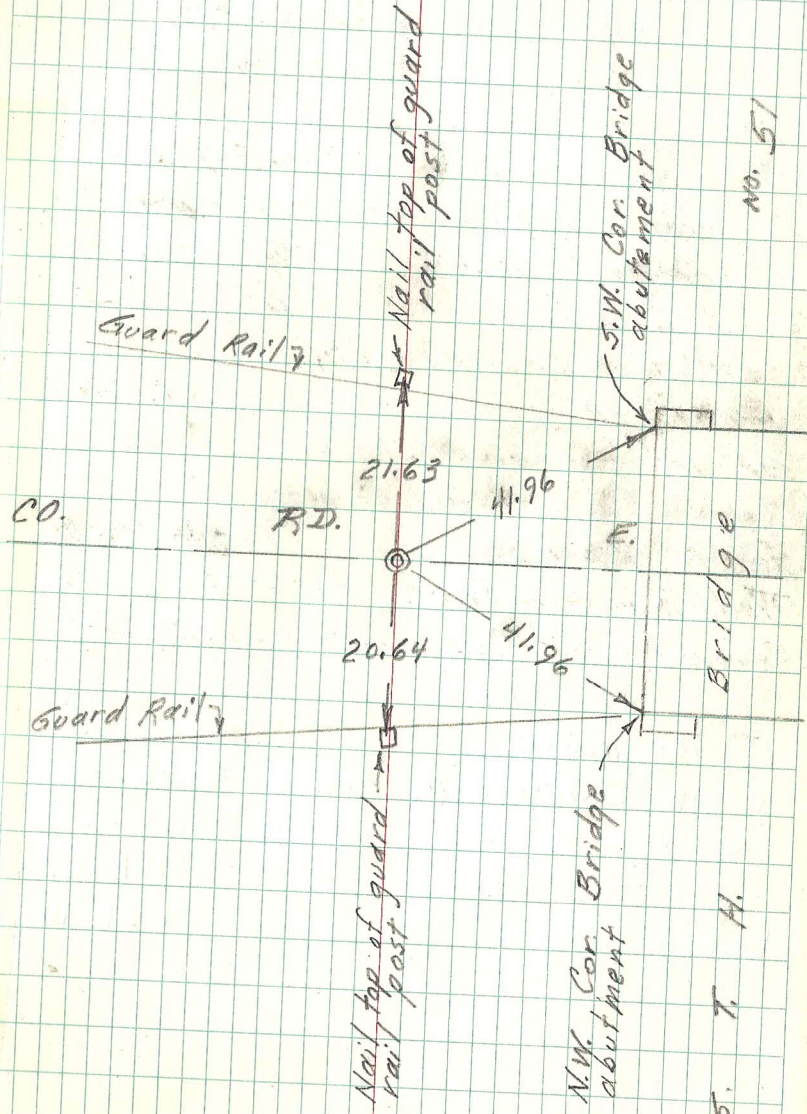 Nail top of guard
rail post
S.W. Cor. Bridge
abutement
No. 51
Guard Rail
21.63
41.96
CO. RD.
F.
Bridge
20.64
41.96
Guard Rail
Nail top of guard
rail post
N.W. Cor. Bridge
abutment
S. T. H.